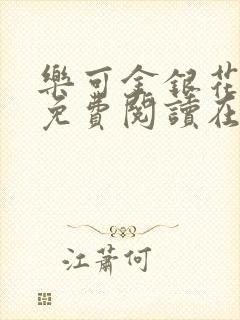 樂可金銀花
免費閱讀在
江蕭何